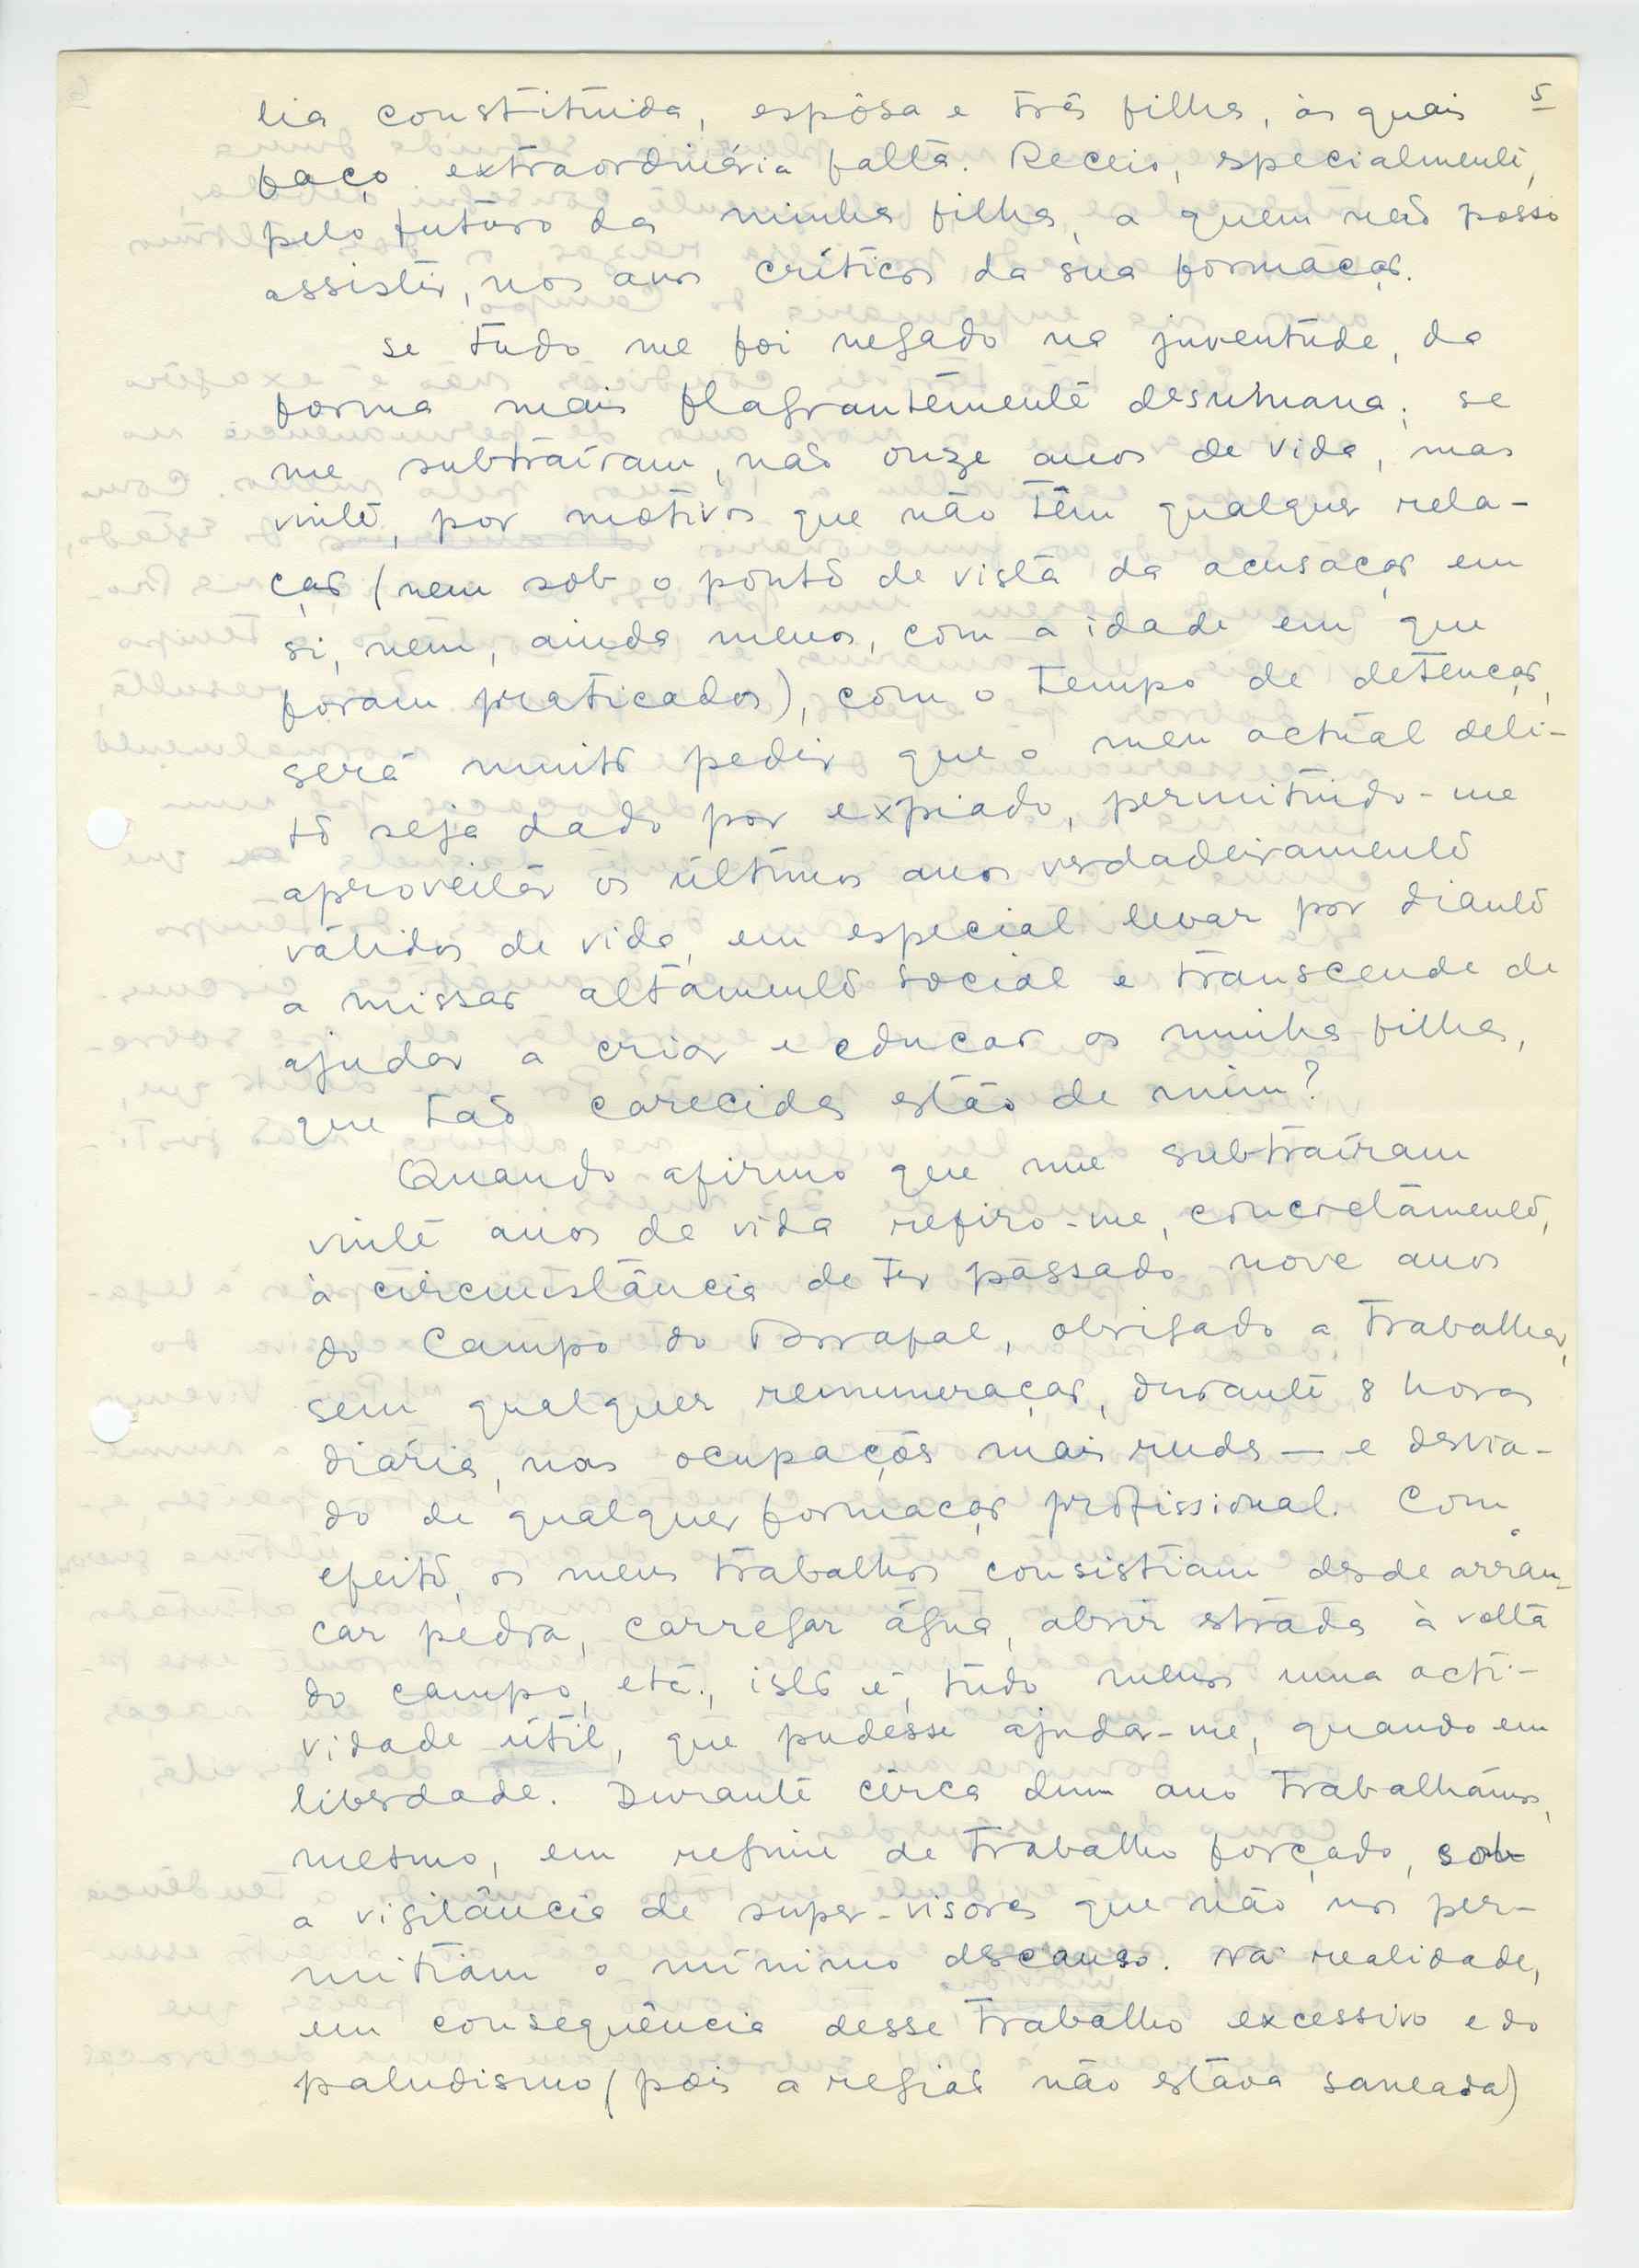 5
lia constituida, espôsa e três filhas, às quais
faço extraordinária falta. Receio, especialmente,
pelo futuro das minhas filhas, a quem não posso
assistir, nos anos críticos da sua formação.
se tudo me foi negado na juventude, da
forma mais flagrantemente desumana; se
me subtraíram, não onze anos de vida, mas
vinte, por motivos que não têm qualquer rela-
ção (nem sob o ponto de vista da acusação em
si, nem, ainda menos, com a idade em que
foram praticados), com o tempo de detenção,
será muito pedir que o meu actual deli-
to seja dado por expiado, permitindo-me
aproveitar os últimos anos verdadeiramente
válidos de vida, em especial levar por diante
a missão altamente social e transcende de
ajudar a criar e educar as minhas filhas,
que tão carecidas estão de mim?
Quando afirmo que me subtraíram
vinte anos de vida refiro-me, concretamente,
à circunstância de ter passado nove anos
do Campo do Tarrafal, obrigado a trabalhar,
sem qualquer remuneração, durante 8 horas
diárias, nas ocupações mais rudes — e desvia-
do de qualquer formação profissional. Com
efeito, os meus trabalhos consistiam desde arran-
car pedra, carregar água, abrir estradas à volta
do campo, etc., isto é, tudo menos uma acti-
vidade útil, que pudesse ajudar-me, quando em
liberdade. Durante cêrca dum ano trabalhámos,
mesmo, em regime de trabalho forçado, sob
a vigilância de super-visores que não nos per-
mitiam o mínimo descanso. Na realidade,
em consequência desse trabalho excessivo e do
paludismo (pois a região não estava saneada)